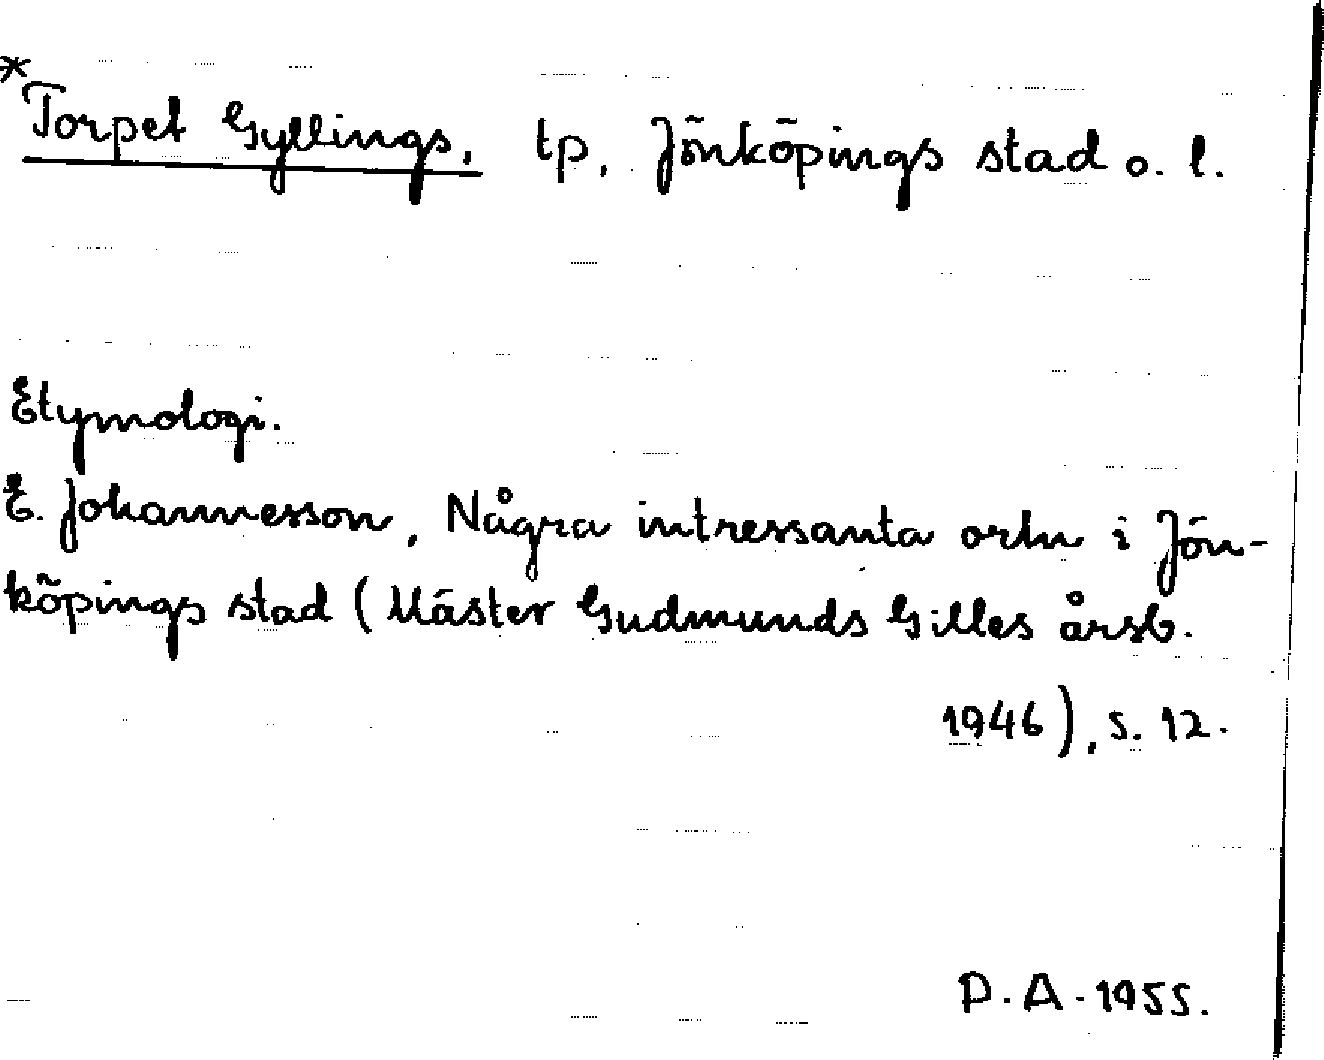 *Torpet Gyllings, tp, Jönköpings stad o. l.
Etymologi.
E. Johannesson, Några intressanta ortn i Jön-
köpings stad (Mäster Gudmunds Gilles årsb.
1946), s. 12.
P.A. 1955.